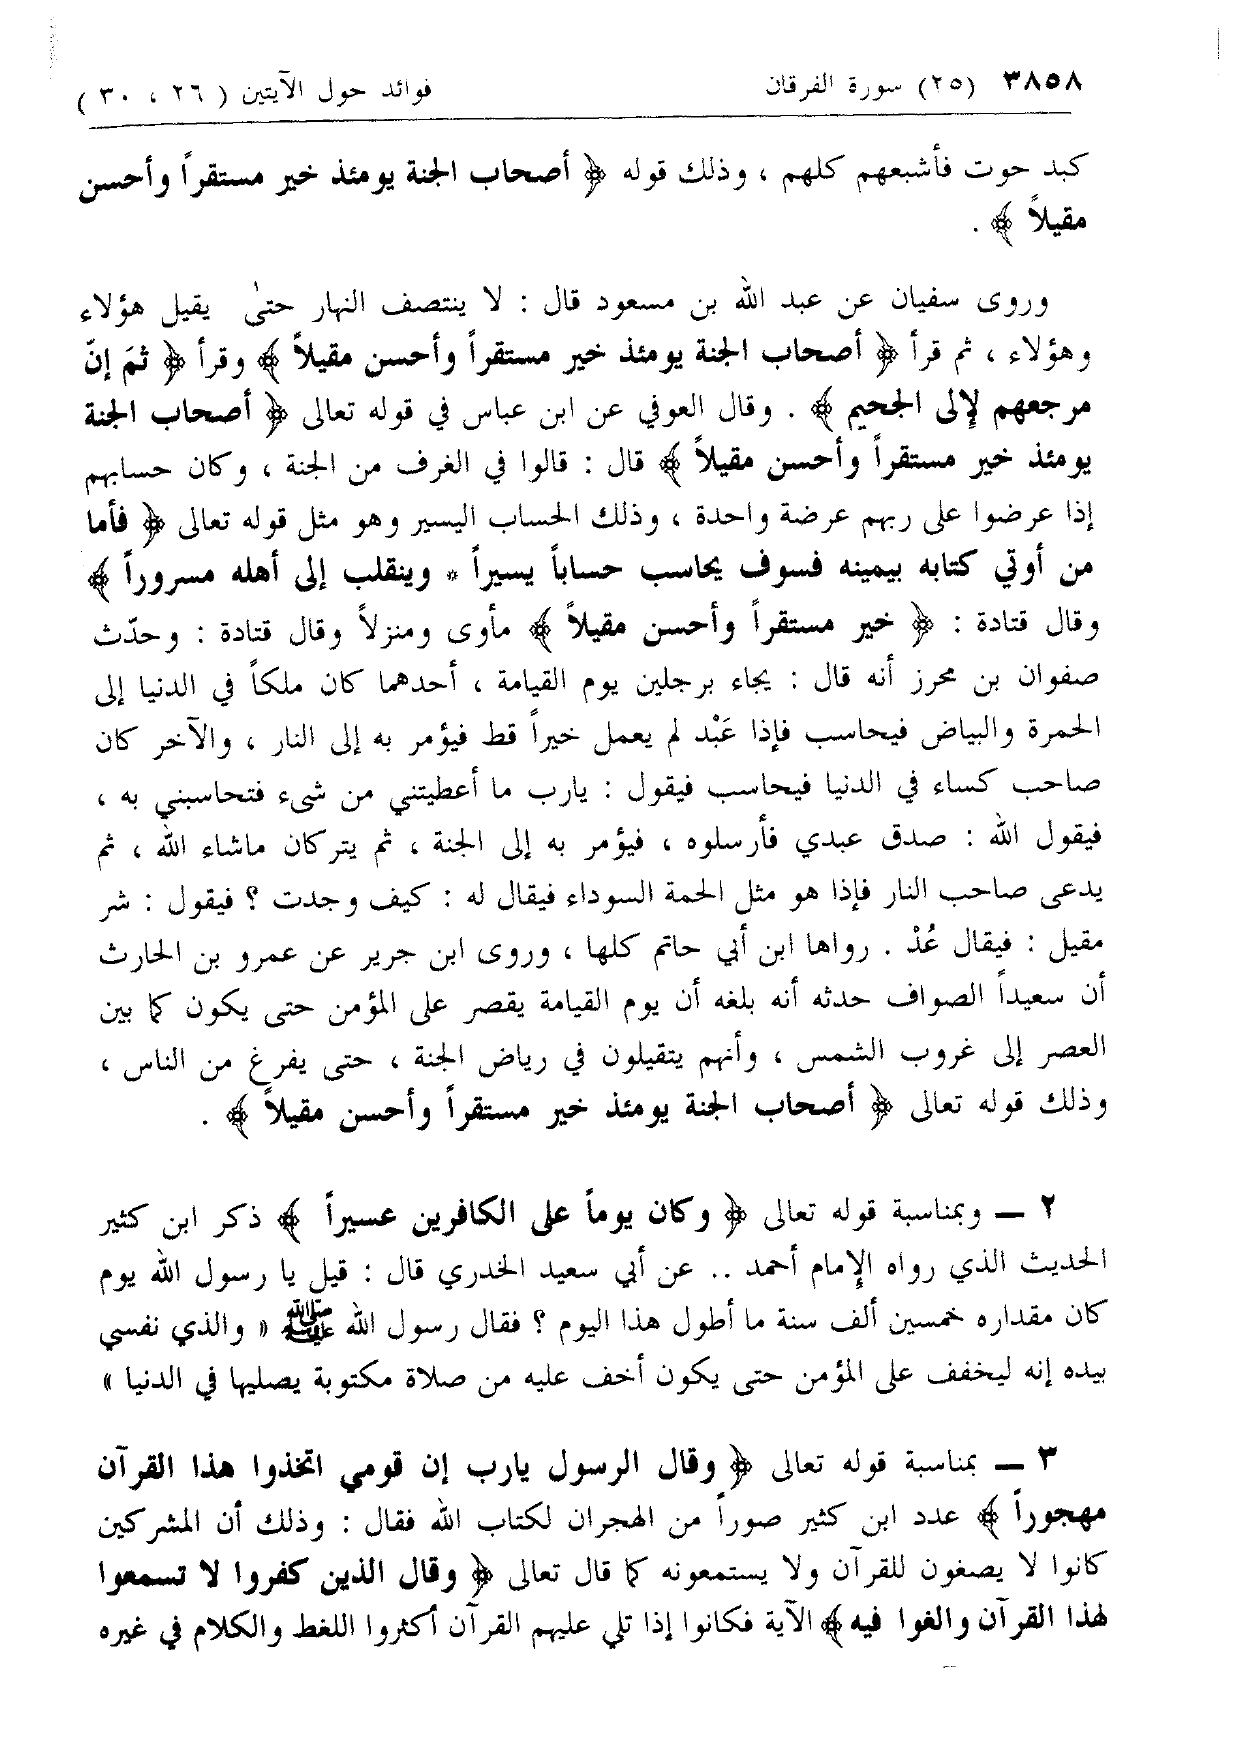 ٣٨٥٨ (٢٥) سورة الفرقان فوائد حول الآيتين ( ٢٦ ، ٣٠ )
كبد حوت فأشبعهم كلهم ، وذلك قوله ﴿ أصحاب الجنة يومئذ خير مستقراً وأحسن
مقيلاً ﴾ .
وروى سفيان عن عبد الله بن مسعود قال : لا ينتصف النهار حتىٰ يقيل هؤلاء
وهؤلاء ، ثم قرأ ﴿ أصحاب الجنة يومئذ خير مستقراً وأحسن مقيلاً ﴾ وقرأ ﴿ ثمَ إنّ
مرجعهم لإلى الجحيم ﴾ . وقال العوفي عن ابن عباس في قوله تعالى ﴿ أصحاب الجنة
يومئذ خير مستقراً وأحسن مقيلاً ﴾ قال : قالوا في الغرف من الجنة ، وكان حسابهم
إذا عرضوا على ربهم عرضة واحدة ، وذلك الحساب اليسير وهو مثل قوله تعالى ﴿ فأما
من أوتي كتابه بيمينه فسوف يحاسب حساباً يسيراً * وينقلب إلى أهله مسروراً ﴾
وقال قتادة : ﴿ خير مستقراً وأحسن مقيلاً ﴾ مأوى ومنزلاً وقال قتادة : وحدّث
صفوان بن محرز أنه قال : يجاء برجلين يوم القيامة ، أحدهما كان ملكاً في الدنيا إلى
الحمرة والبياض فيحاسب فإذا عَبْد لم يعمل خيراً قط فيؤمر به إلى النار ، والآخر كان
صاحب كساء في الدنيا فيحاسب فيقول : يارب ما أعطيتني من شىء فتحاسبني به ،
فيقول الله : صدق عبدي فأرسلوه ، فيؤمر به إلى الجنة ، ثم يتركان ماشاء الله ، ثم
يدعى صاحب النار فإذا هو مثل الحمة السوداء فيقال له : كيف وجدت ؟ فيقول : شر
مقيل : فيقال عُدْ . رواها ابن أبي حاتم كلها ، وروى ابن جرير عن عمرو بن الحارث
أن سعيداً الصواف حدثه أنه بلغه أن يوم القيامة يقصر على المؤمن حتى يكون كما بين
العصر إلى غروب الشمس ، وأنهم يتقيلون في رياض الجنة ، حتى يفرغ من الناس ،
وذلك قوله تعالى ﴿ أصحاب الجنة يومئذ خير مستقراً وأحسن مقيلاً ﴾ .
٢ ــ وبمناسبة قوله تعالى ﴿ وكان يوماً على الكافرين عسيراً ﴾ ذكر ابن كثير
الحديث الذي رواه الإمام أحمد .. عن أبي سعيد الخدري قال : قيل يا رسول الله يوم
كان مقداره خمسين ألف سنة ما أطول هذا اليوم ؟ فقال رسول الله ﷺ « والذي نفسي
بيده إنه ليخفف على المؤمن حتى يكون أخف عليه من صلاة مكتوبة يصليها في الدنيا »
٣ ــ بمناسبة قوله تعالى ﴿ وقال الرسول يارب إن قومي اتخذوا هذا القرآن
مهجوراً ﴾ عدد ابن كثير صوراً من الهجران لكتاب الله فقال : وذلك أن المشركين
كانوا لا يصغون للقرآن ولا يستمعونه كما قال تعالى ﴿ وقال الذين كفروا لا تسمعوا
لهذا القرآن والغوا فيه ﴾ الآية فكانوا إذا تلي عليهم القرآن أكثروا اللغط والكلام في غيره